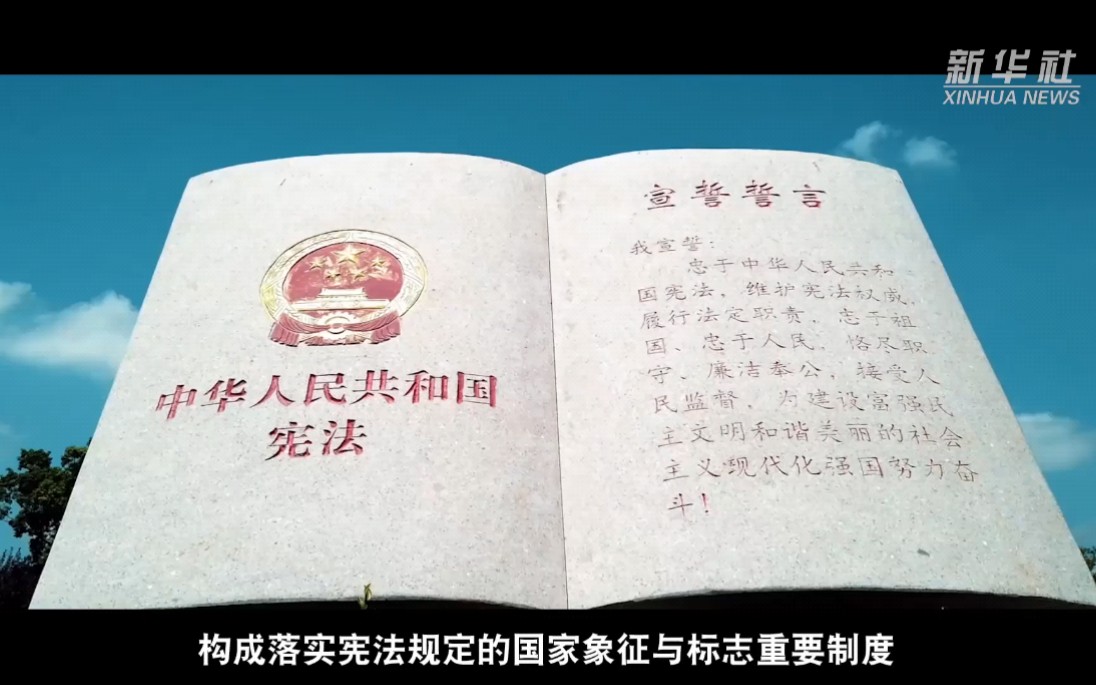 新华社
XINHUA NEWS
中华人民共和国
宪法
宣誓誓言
我宣誓：
忠于中华人民共和
国宪法，维护宪法权威，
履行法定职责，忠于祖
国、忠于人民，恪尽职
守、廉洁奉公，接受人
民监督，为建设富强民
主文明和谐美丽的社会
主义现代化强国努力奋
斗！
构成落实宪法规定的国家象征与标志重要制度